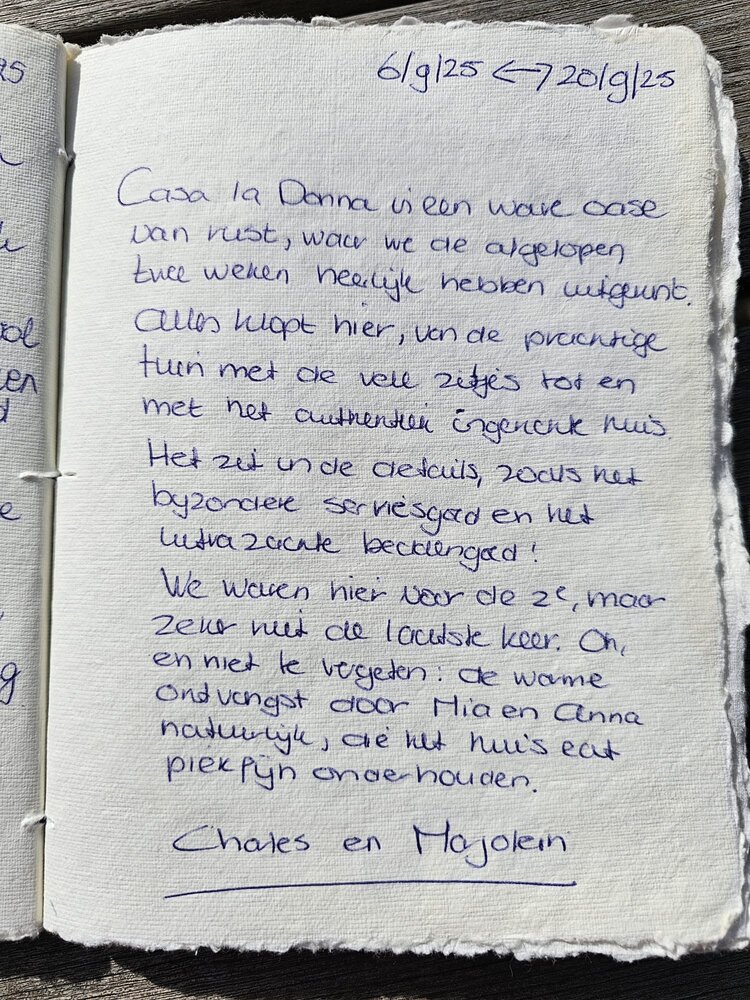 6/9/25 <-> 20/9/25
Casa la Donna is een ware oase
van rust, waar we de afgelopen
twee weken heerlijk hebben uitgerust.
Alles klopt hier, van de prachtige
tuin met de vele zitjes tot en
met het authentiek ingerichte huis.
Het zit in de details, zoals het
byzondere serviesgoed en het
ultra zachte beddengoed!
We waren hier voor de 2e, maar
zeker niet de laatste keer. Oh,
en niet te vergeten: de warme
ontvangst door Mia en Anna
natuurlijk, die het huis echt
piekfijn onderhouden.
Charles en Marjolein